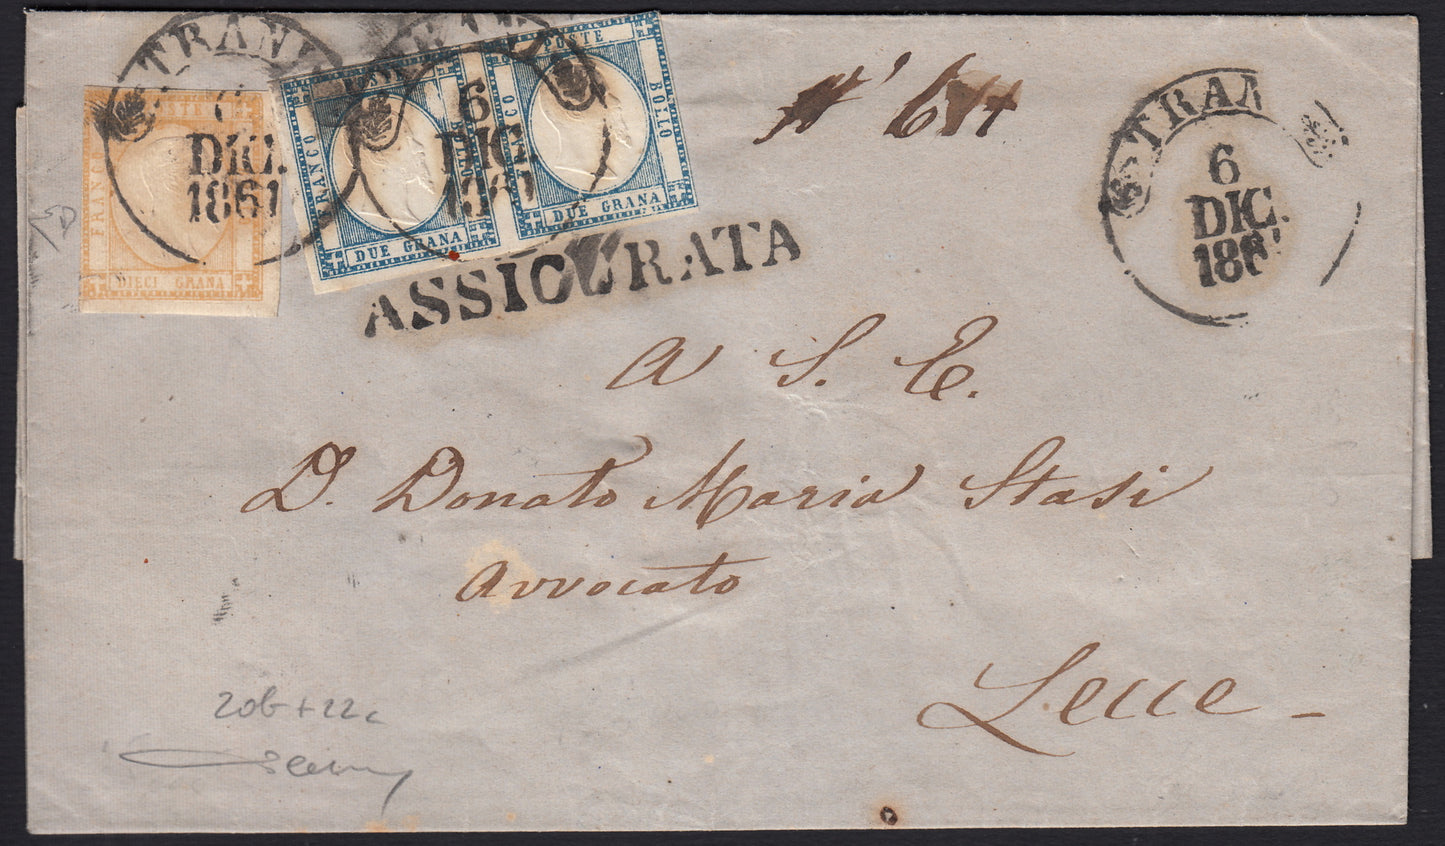 TRANI
DIC.
1861
FRANCO
DIECI GRANA
TRANI
6
DIC.
1861
FRANCO
DUE GRANA
FRANCO
POSTE
BOLLO
DUE GRANA
ASSICURATA
TRANI
6
DIC.
186
A S. E.
D. Donato Maria Stasi
Avvocato
Lecce
20b + 22c